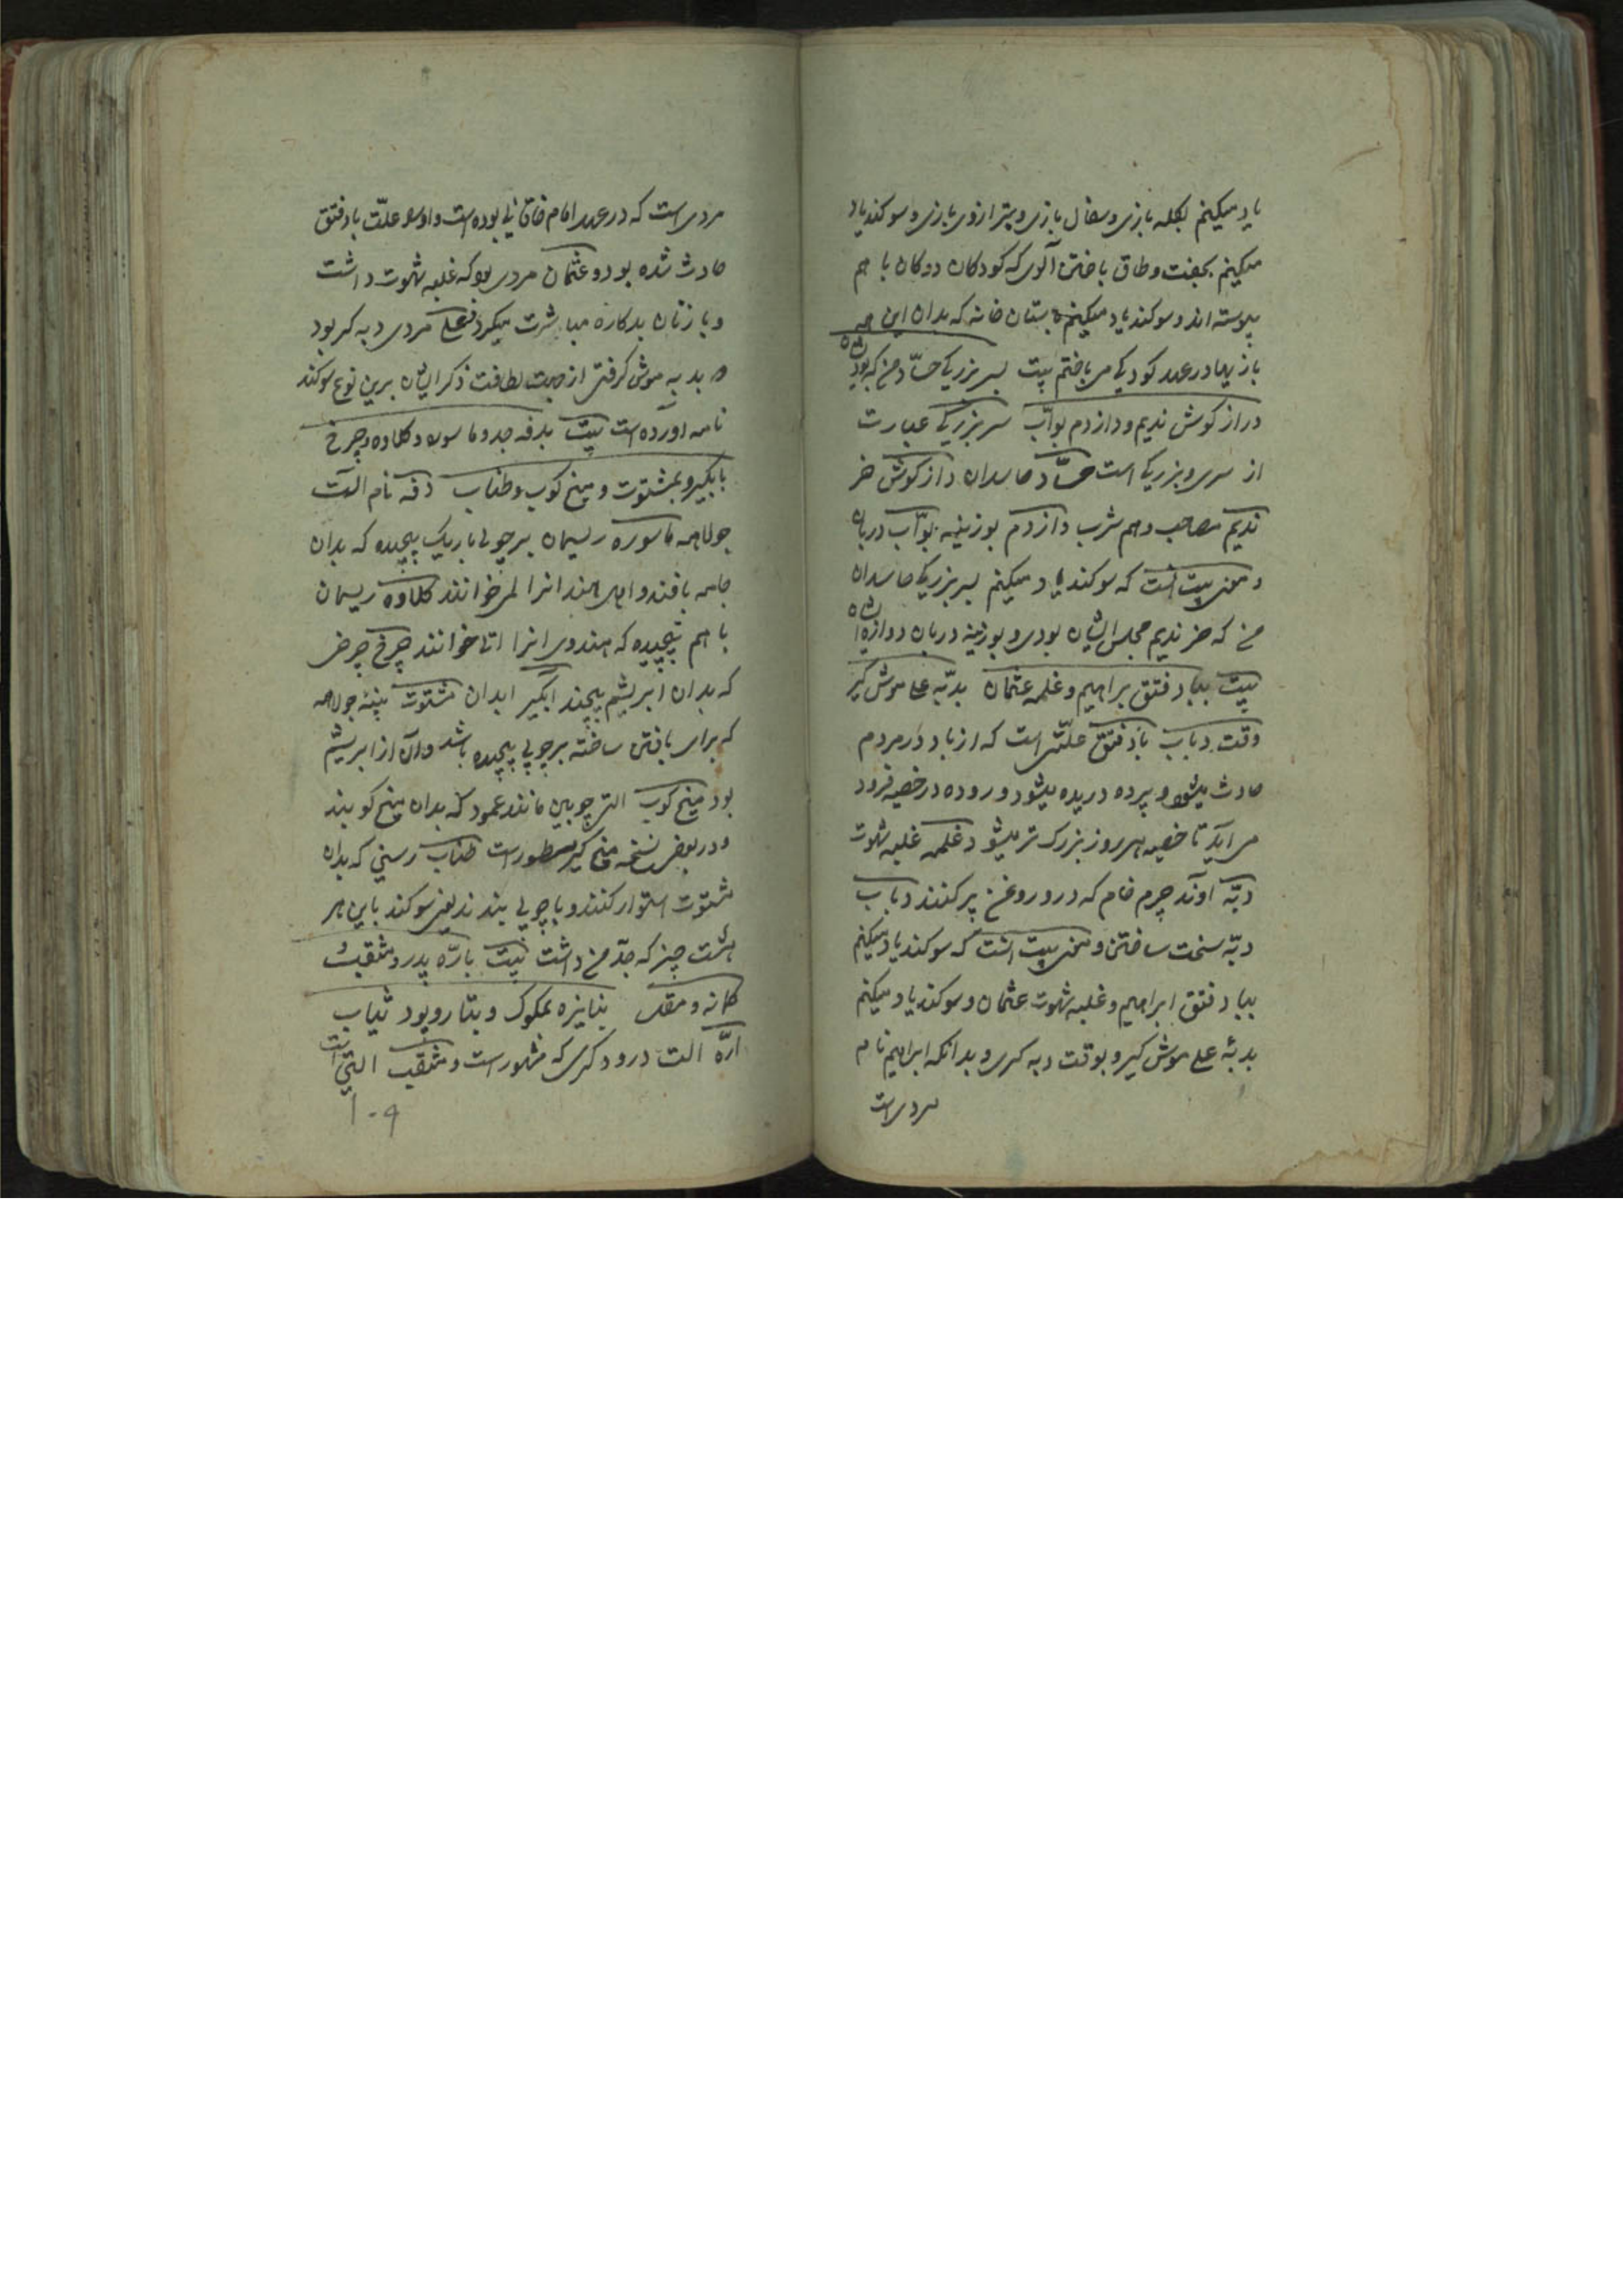 یاد میکنم بکله بازی و سفال بازی و بترازوی بازی و سوکند یاد
میکنم بجفت و طاق باختن آلوی که کودکان دوکان با هم
پیوسته اند و سوکند یاد میکنم بستان خانه که بدان این همه
بازیها در عهد کودکی می باختم بیت بسر بزریکی حسّاد من که بود شان
دراز کوش ندیم و دازدم بوّاب سر بزریکی عبارت
از سری و بزریکی است حسّاد حاسدان دراز کوش خر
ندیم مصاحب و هم شرب دازدم بوزینه بوّاب دربان
و معنی بیت انست که سوکند یاد میکنم بسر بزریکی حاسدان
من که خر ندیم مجلس ایشان بودی و بوزینه دربان دروازه ایشان
بیت بباد فتق براهیم و غلمه عثمان بدبّه علی موش کیر
وقت دباب باد فتق علّتی است که از باد در مردم
حادث میشود و پرده دریده میشود و روده در خصیه فرود
می آید تا خصیه هر روز بزرک تر میشود غلمه غلبه شهوت
دبّه اوند چرم خام که درو روغن پر کنند دباب
دبّه سخت ساختن و معنی بیت انست که سوکند یاد میکنم
بباد فتق ابراهیم و غلبه شهوت عثمان و سوکند یاد میکنم
بدبّه علی موش کیر و بوقت دبه کری و بدانکه ابراهیم نام
مردی است
مردی است که در عهد امام خاقانی بوده است و او را علّت باد فتق
حادث شده بود و عثمان مردی بود که غلبه شهوت داشت
و با زنان بدکاره مباشرت میکرد و علی مردی دبه کر بود
و بدبه موش کرفتی از جهت لطافت ذکر ایشان برین نوع سوکند
نامه آورده است بیت بدفه جد و ماسوره و کلاوه و چرخ
بابکیر و بمشتوت و میخ کوب و طناب دفه نام آلت
جولاهه ماسوره ریسمان بر چوبی باریک پیچیده که بدان
جامه بافند و اهل هند انرا لر خوانند کلاوه ریسمان
با هم پیچیده که هندوی انرا اتا خوانند چرخ چرخی
که بدان ابریشم پیچند ابکیر ابدان مشتوت پنبه جولاهه
که برای بافتن ساخته بر چوبی پیچیده باشد و آن از ابریشم
بود میخ کوب التی چوبین مانند عمود که بدان میخ کوبند
و در بعضی نسخه میخ کیر مسطور است طناب رسنی که بدان
مشتوت استوار کنند و با چوبی بندند یعنی سوکند باین هر
هشت چیز که جدّ من داشت بیت بارّه پدر و مثقب
کمانه و مقل بنایزه بمکوک و بتار و پود ثیاب
ارّه الت درودکری که مشهور است و مثقب التی است
۱۰۹